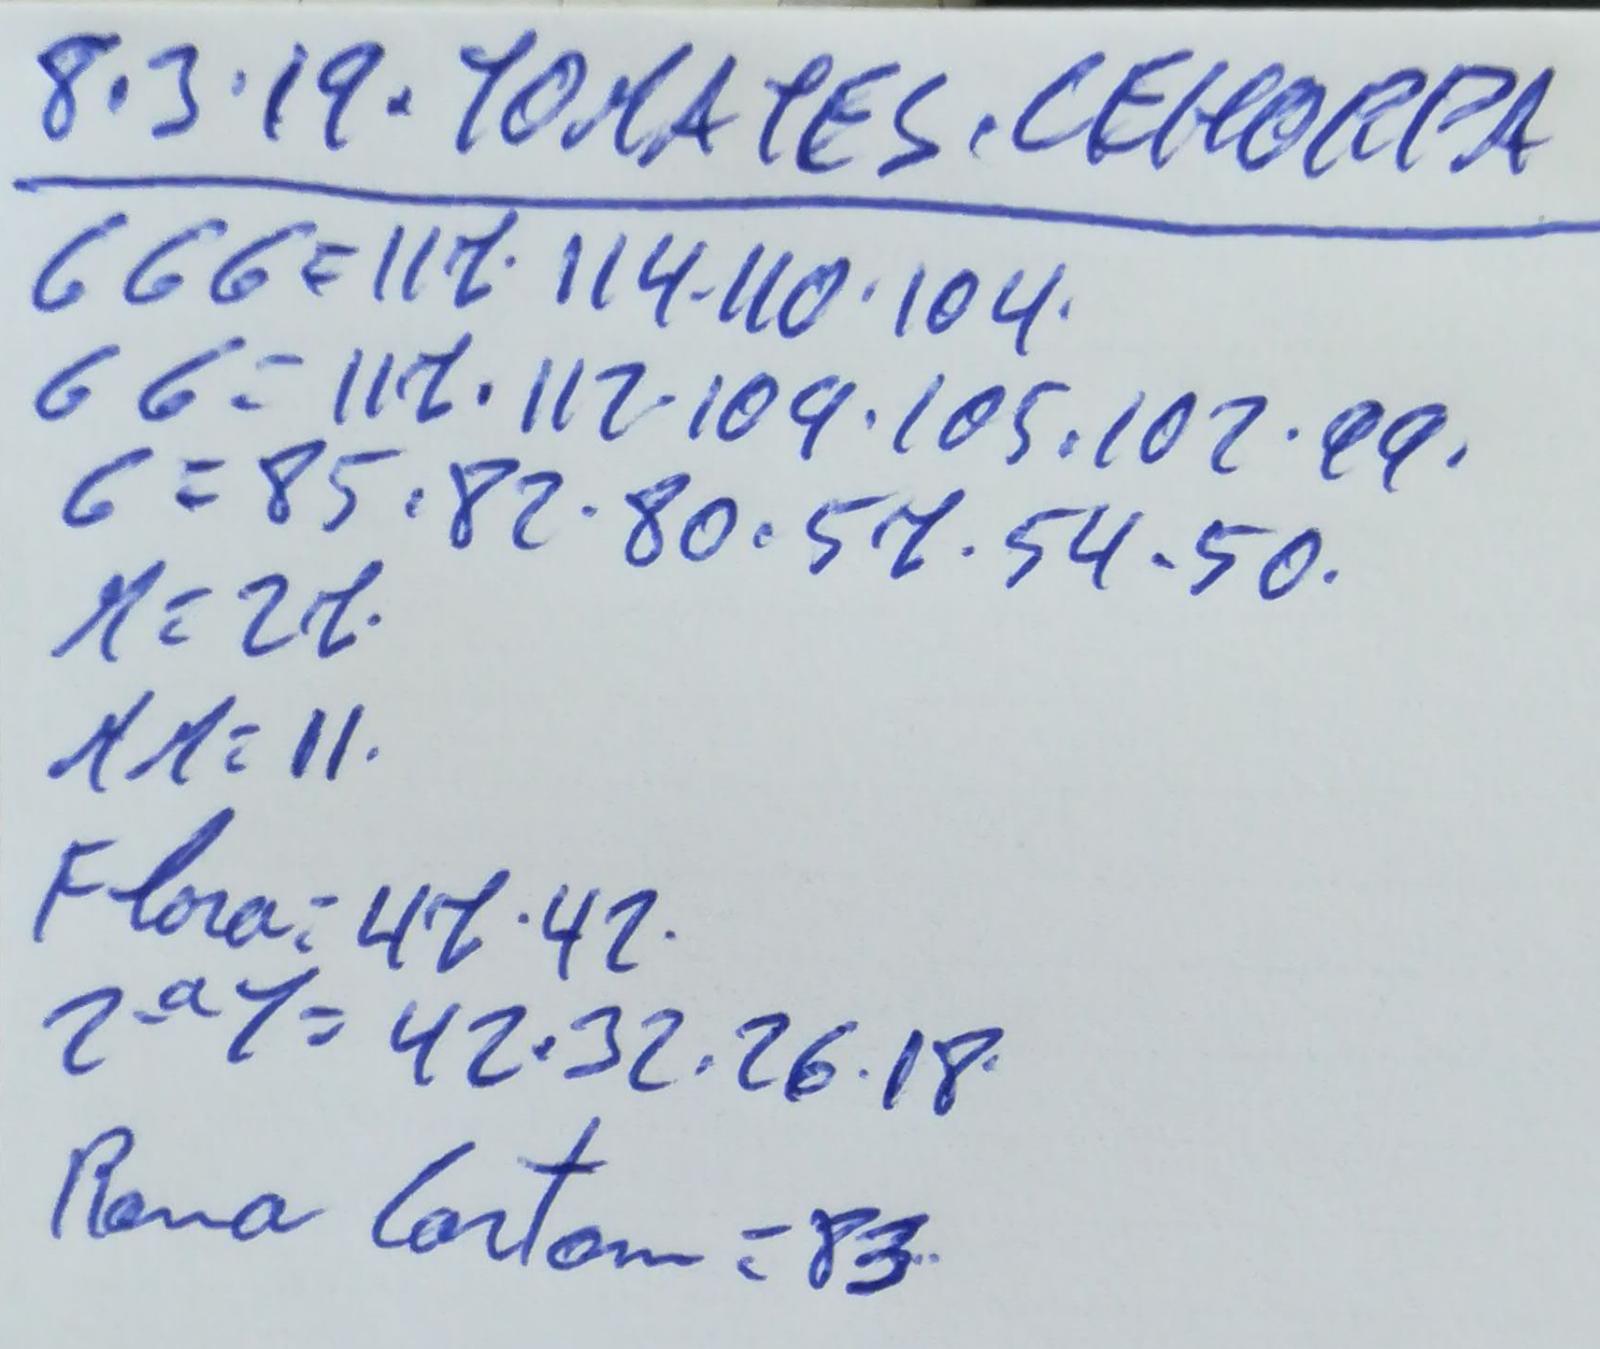 8.3.19. TOMATES. CEHORPA
GGG=117. 114-110.104.
GG=117.112.109.105.102.99.
G=85.82.80.57.54.50.
M=27.
MM=11.
Flora=47.42.
2ªT=42.32.26.18.
Rama Carton=83.